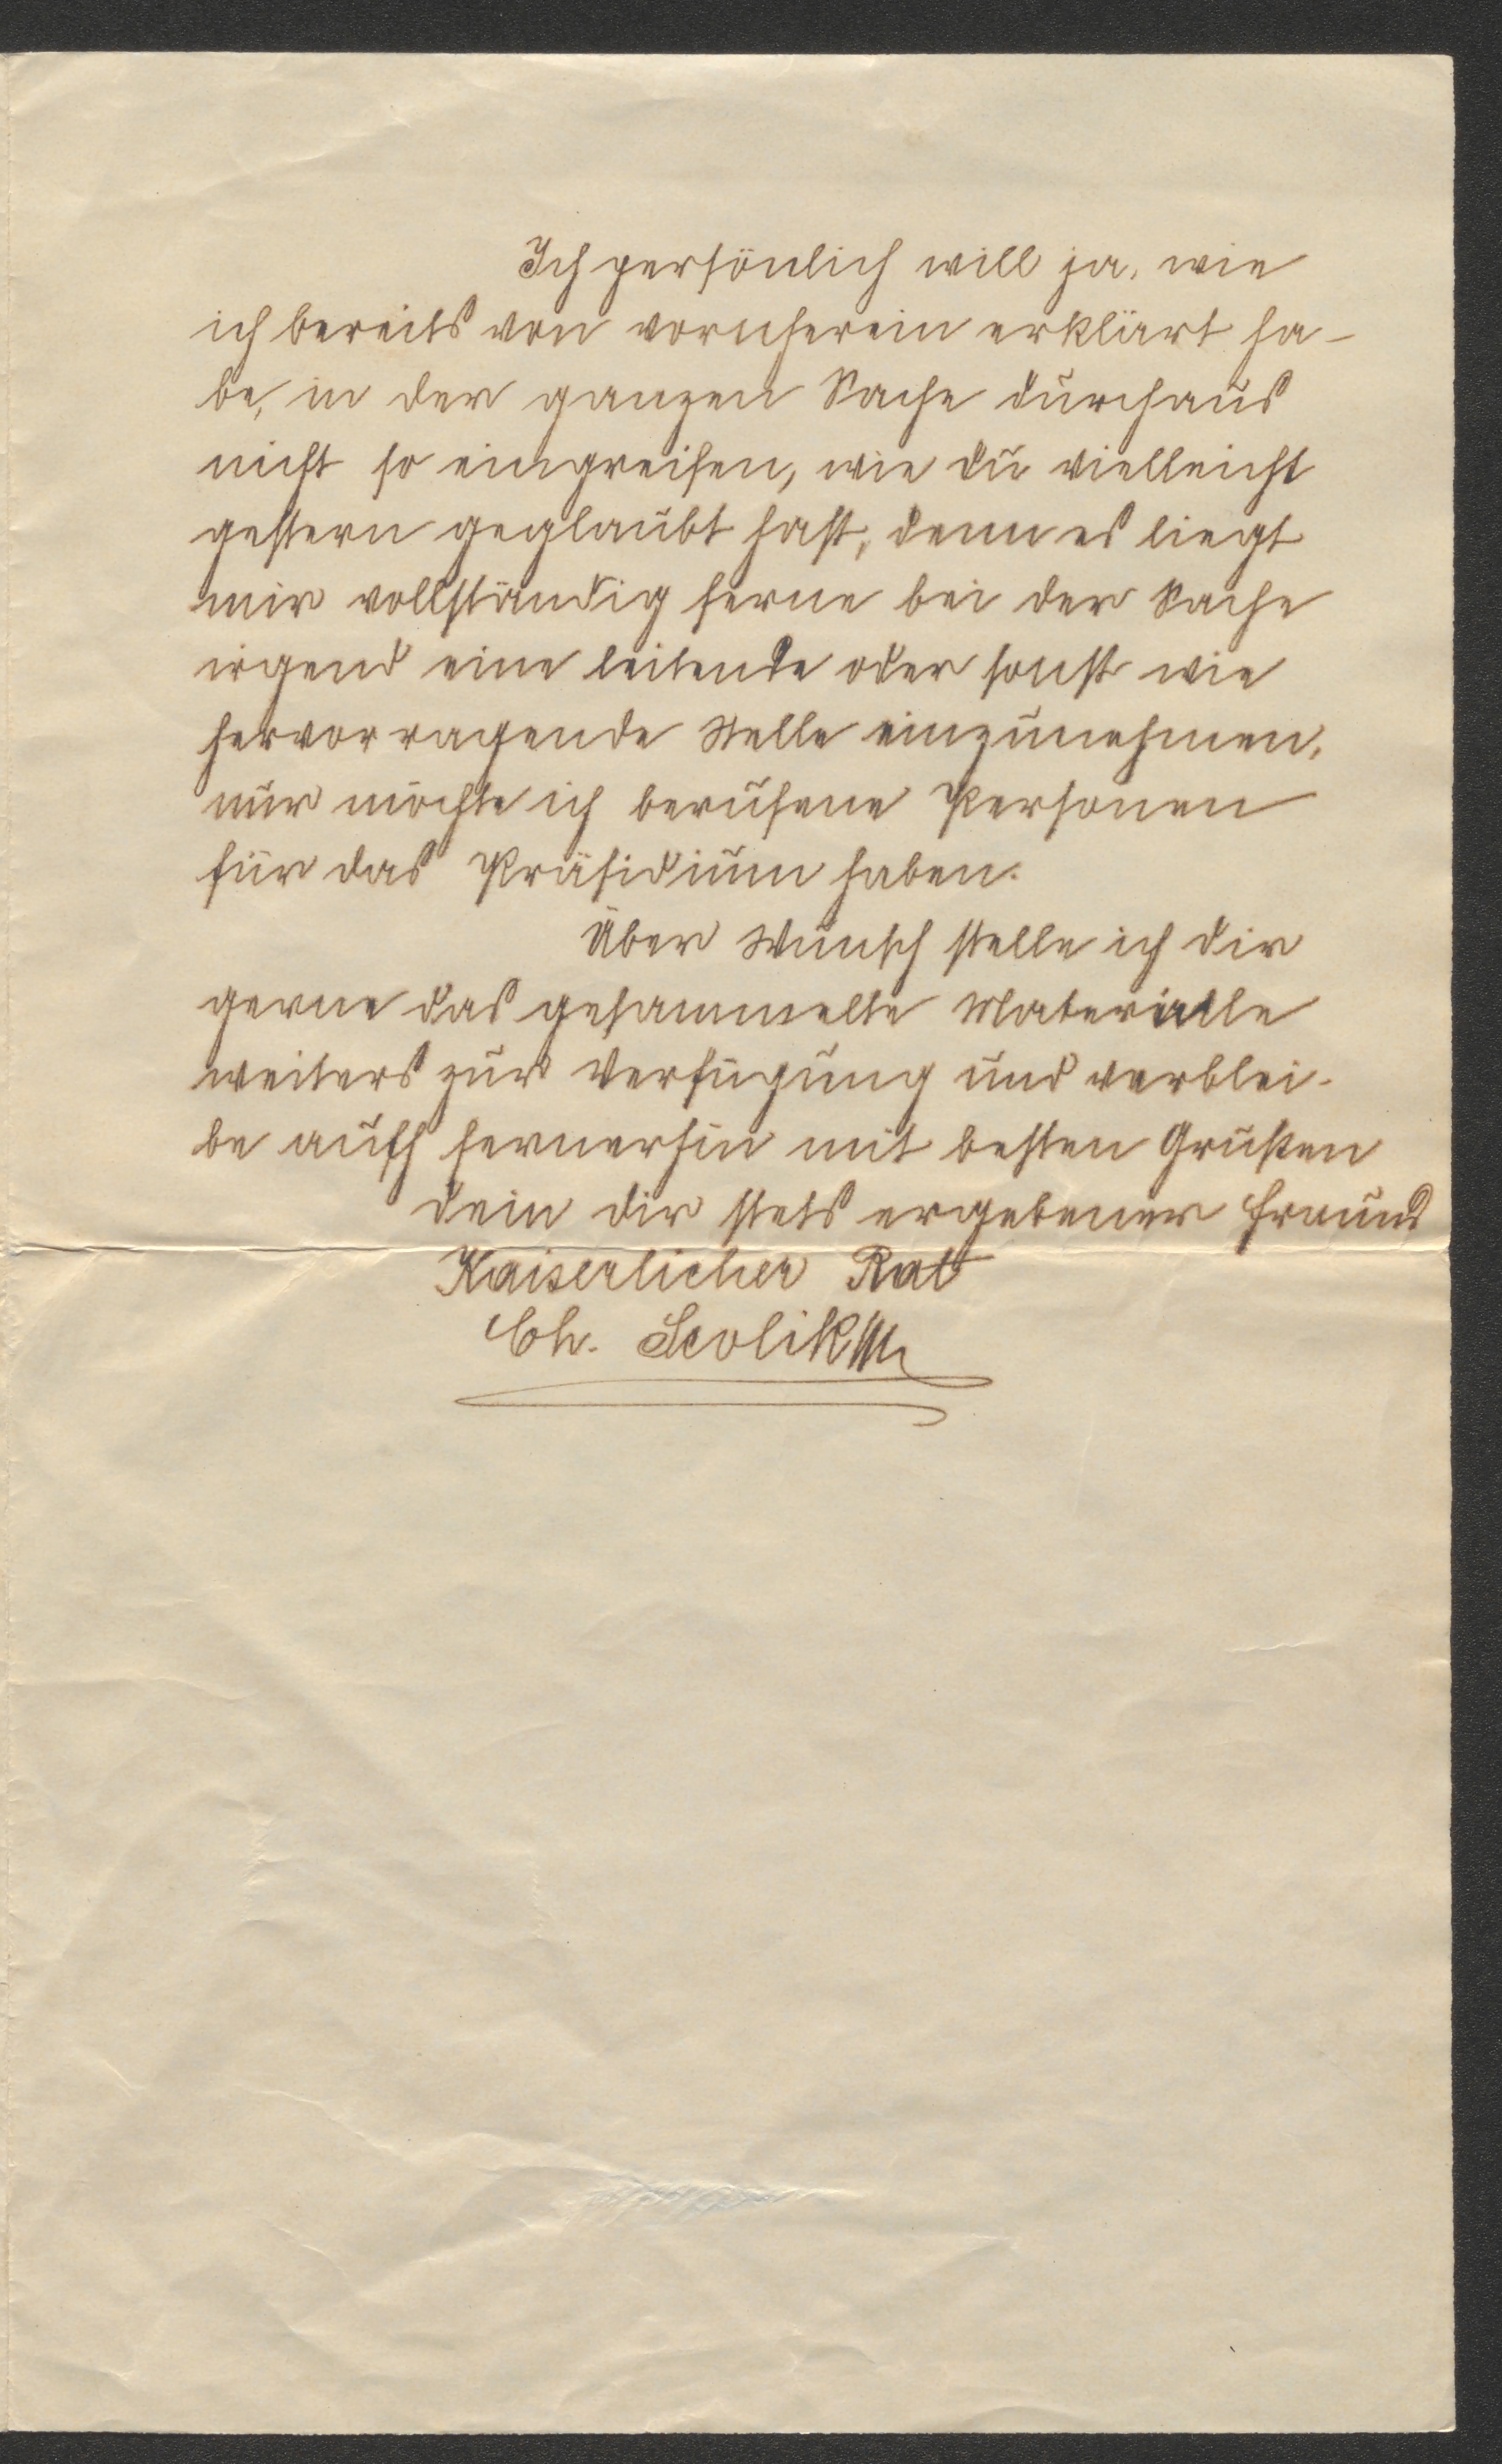 Ich persönlich will ja, wie
ich bereits von vornherein erklärt ha-
be, in der ganzen Sache durchaus
nicht so eingreifen, wie du vielleicht
gestern geglaubt hast, denn es liegt
mir vollständig ferne bei der Sache
irgend eine leitende oder sonst wie
hervorragende Stelle einzunehmen,
nur möchte ich berufene Personen
für das Präsidium haben.
Über Wunsch stelle ich dir
gerne das gesammelte Materialle
weiters zur Verfügung und verblei-
be auch fernerhin mit besten Grüßen
dein dir stets ergebener Freund
Kaiserlicher Rat
Ch. Scolik